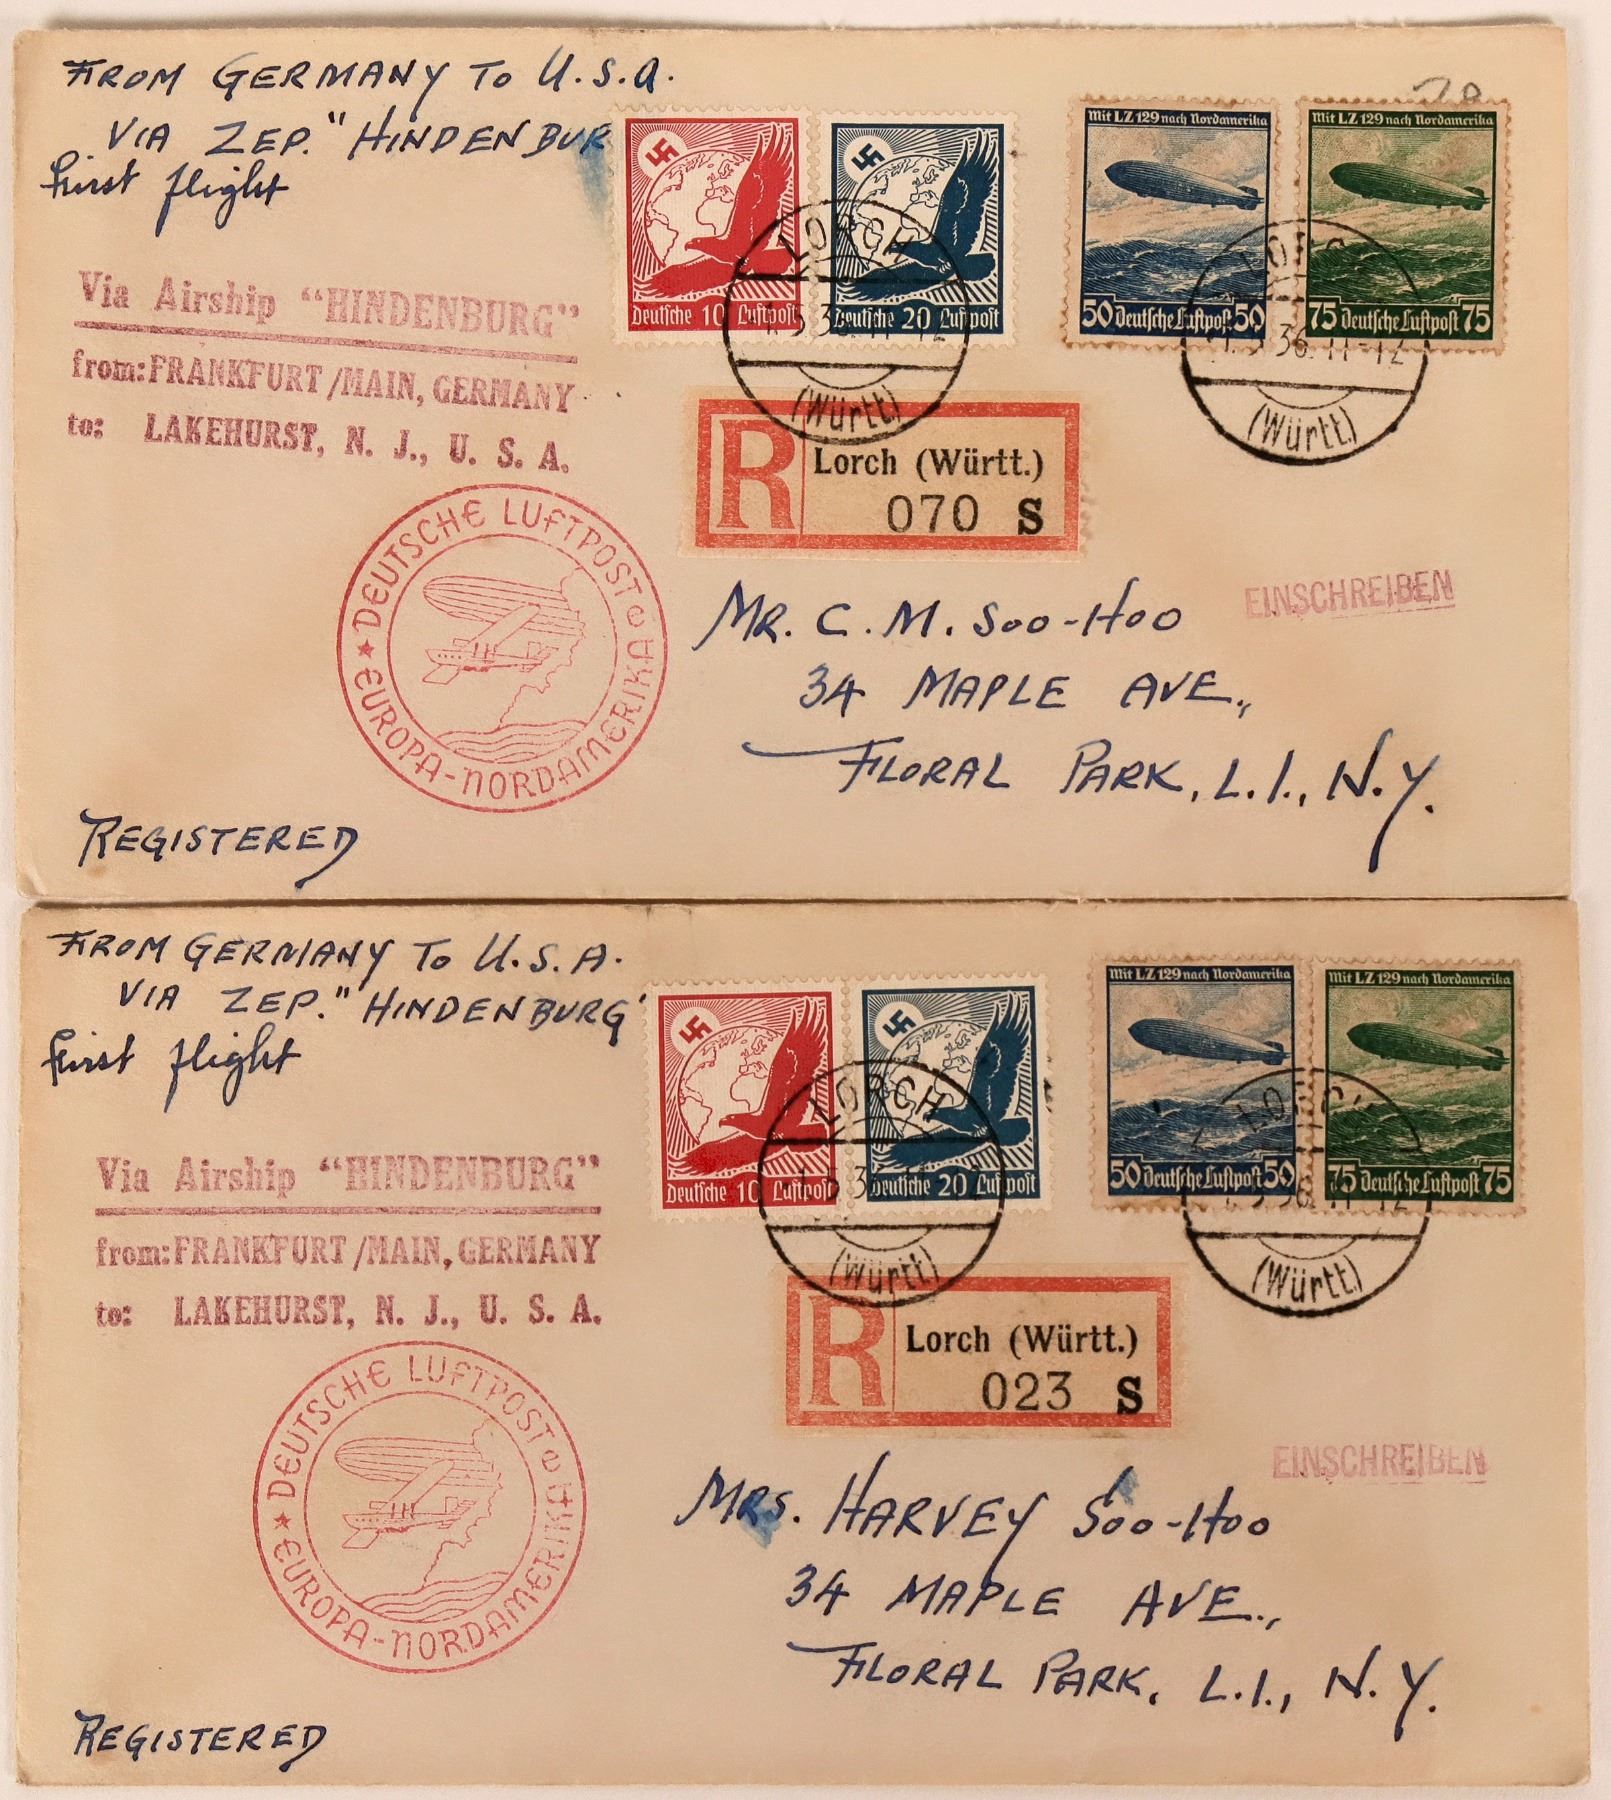 FROM GERMANY TO U.S.A.
VIA ZEP. "HINDENBUR
first flight
Via Airship “HINDENBURG”
from: FRANKFURT/MAIN, GERMANY
to: LAKEHURST, N. J., U. S. A.
DEUTSCHE LUFTPOST
EUROPA-NORDAMERIKA
REGISTERED
Deutsche 10 Luftpost
Deutsche 20 Luftpost
Mit LZ 129 nach Nordamerika
50 Deutsche Luftpost 50
Mit LZ 129 nach Nordamerika
75 Deutsche Luftpost 75
LORCH
5.36.11-12
(Württ.)
LORCH
5.36.11-12
(Württ.)
R
Lorch (Württ.)
070 S
EINSCHREIBEN
MR. C. M. SOO-HOO
34 MAPLE AVE.,
FLORAL PARK, L.I., N.Y.
FROM GERMANY TO U.S.A.
VIA ZEP. "HINDENBURG"
first flight
Via Airship “HINDENBURG”
from: FRANKFURT/MAIN, GERMANY
to: LAKEHURST, N. J., U. S. A.
DEUTSCHE LUFTPOST
EUROPA-NORDAMERIKA
REGISTERED
Deutsche 10 Luftpost
Deutsche 20 Luftpost
Mit LZ 129 nach Nordamerika
50 Deutsche Luftpost 50
Mit LZ 129 nach Nordamerika
75 Deutsche Luftpost 75
LORCH
(Württ.)
LORCH
(Württ.)
R
Lorch (Württ.)
023 S
EINSCHREIBEN
MRS. HARVEY SOO-HOO
34 MAPLE AVE.,
FLORAL PARK, L.I., N.Y.